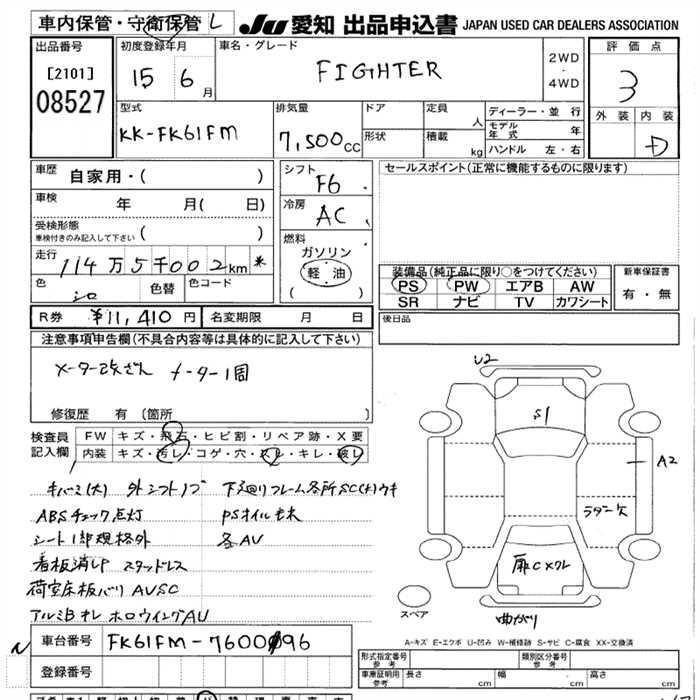 車内保管・守衛保管 L
JU 愛知 出品申込書 JAPAN USED CAR DEALERS ASSOCIATION
出品番号
[2101]
08527
初度登録年月
15 6 月
車名・グレード
FIGHTER
2WD
・
4WD
評価点
3
外装 内装
D
型式
KK-FK61FM
排気量
7,500 CC
ドア
形状
定員
人
積載
kg
ディーラー・並行
モデル年式 年
ハンドル 左・右
車歴
自家用・( )
車検 年 月( 日)
受検形態
車検付きのみ記入して下さい ( )
走行
114万5千002km *
色
シロ
色替
色コード
シフト
F6
冷房
AC
燃料
ガソリン
軽油
( )
セールスポイント(正常に機能するものに限ります)
装備品(純正品に限り○をつけてください)
PS PW エアB AW
SR ナビ TV カワシート
新車保証書
有・無
R券 ¥11,410円
名変期限 月 日
後日品
注意事項申告欄(不具合内容等は具体的に記入して下さい)
メーター改ざん メーター1周
修復歴 有 (箇所
検査員
記入欄
FW キズ・飛石・ヒビ割・リペア跡・X要
内装 キズ・汚レ・コゲ・穴・スレ・キレ・破レ
キバミ(大) 外シフトノブ 下廻りフレーム各所SC(大)ウキ
ABSチェック点灯 PSオイルモレ
シート1部規格外 各AU
看板消しP スタッドレス
荷室床板バリ AUSC
アルミBオレ ホロウイングAU
U2
S1
A2
ラダー欠
扉CXクレ
曲がり
スペア
A-キズ E-エクボ U-凹み W-補修跡 S-サビ C-腐食 XX-交換済
車台番号 FK61FM-760096
登録番号
形式指定番号
参考
類別区分番号
参考
車庫証明用
参考
長さ cm 幅 cm 高さ cm